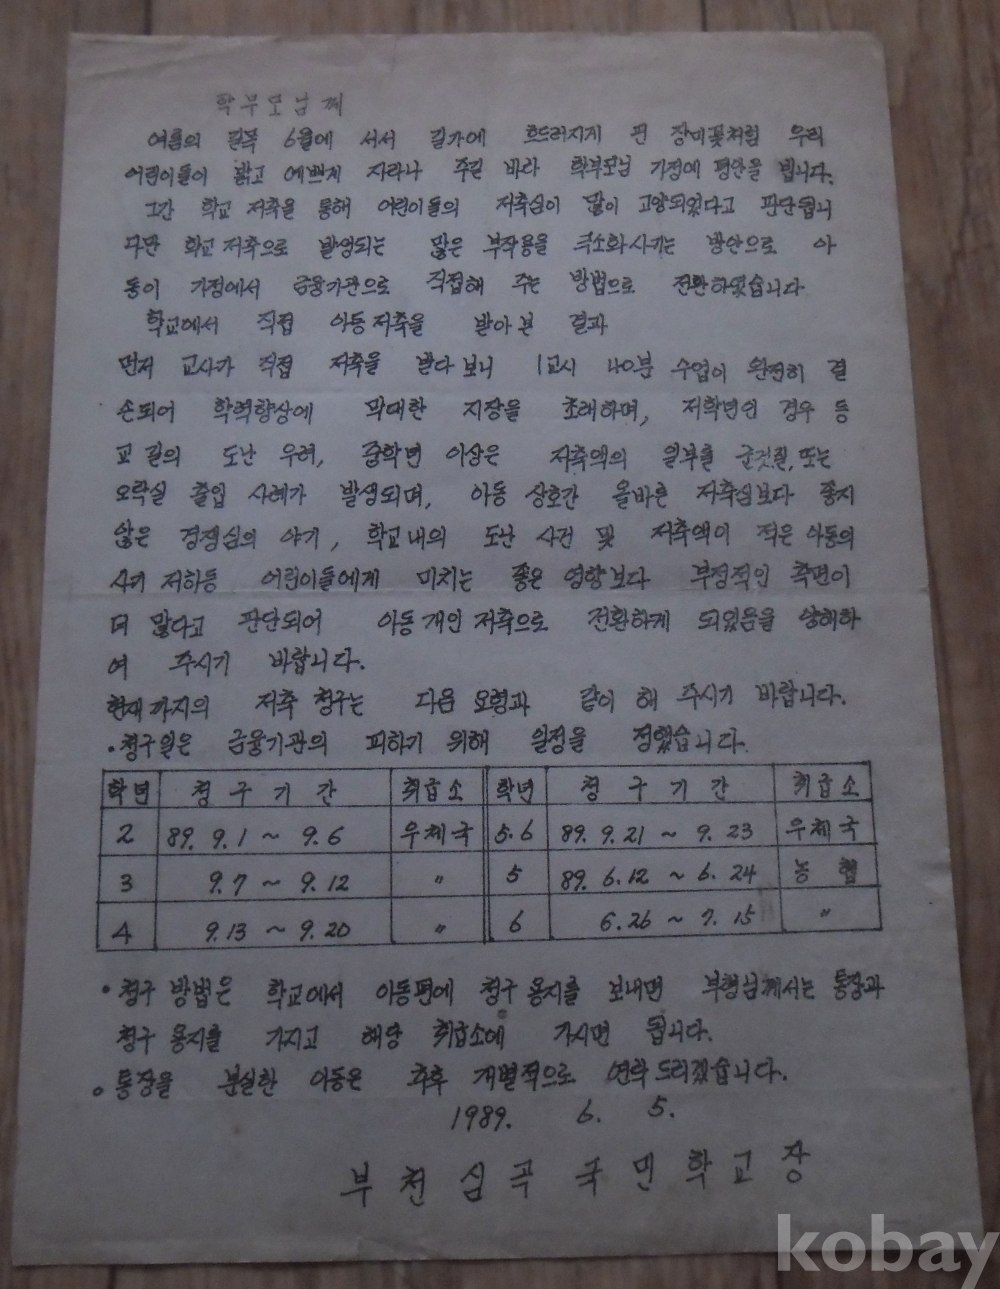 학부모님께
여름의 길목 6월에 서서 길가에 흐드러지게 핀 장미꽃처럼 우리
어린이들이 밝고 예쁘게 자라나 주길 바라 학부모님 가정에 평안을 빕니다.
그간 학교 저축을 통해 어린이들의 저축심이 많이 고양되었다고 판단됩니
다만 학교저축으로 발생되는 많은 부작용을 극소화시키는 방안으로 아
동이 가정에서 금융기관으로 직접해 주는 방법으로 전환하였습니다
학교에서 직접 아동저축을 받아본 결과
먼저 교사가 직접 저축을 받다보니 1교시 40분 수업이 완전히 결
손되어 학력향상에 막대한 지장을 초래하며, 저학년인 경우 등
교길의 도난 우려, 중학년 이상은 저축액의 일부를 군것질, 또는
오락실 출입 사례가 발생되며, 아동 상호간 올바른 저축심보다 좋지
않은 경쟁심의 야기, 학교내의 도난 사건 및 저축액이 적은 아동의
사기 저하등 어린이들에게 미치는 좋은 영향보다 부정적인 측면이
더 많다고 판단되어 아동개인저축으로 전환하게 되었음을 양해하
여 주시기 바랍니다.
현재까지의 저축 청구는 다음 요령과 같이 해 주시기 바랍니다.
• 청구일은 금융기관의 피하기 위해 일정을 정했습니다.
학년 청구기간 취급소 학년 청구기간 취급소
2 89. 9.1 ~ 9.6 우체국 5.6 89. 9.21 ~ 9.23 우체국
3 9.7 ~ 9.12 〃 5 89. 6.12 ~ 6.24 농협
4 9.13 ~ 9.20 〃 6 6.26 ~ 7.15 〃
• 청구 방법은 학교에서 아동편에 청구 용지를 보내면 부형님께서는 통장과
청구 용지를 가지고 해당 취급소에 가시면 됩니다.
◦ 통장을 분실한 아동은 추후 개별적으로 연락드리겠습니다.
1989. 6. 5.
부천심곡국민학교장
kobay